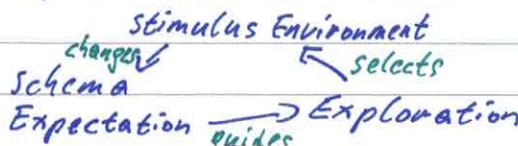 Stimulus Environment
changes
selects
Schema
Expectation guides Exploration